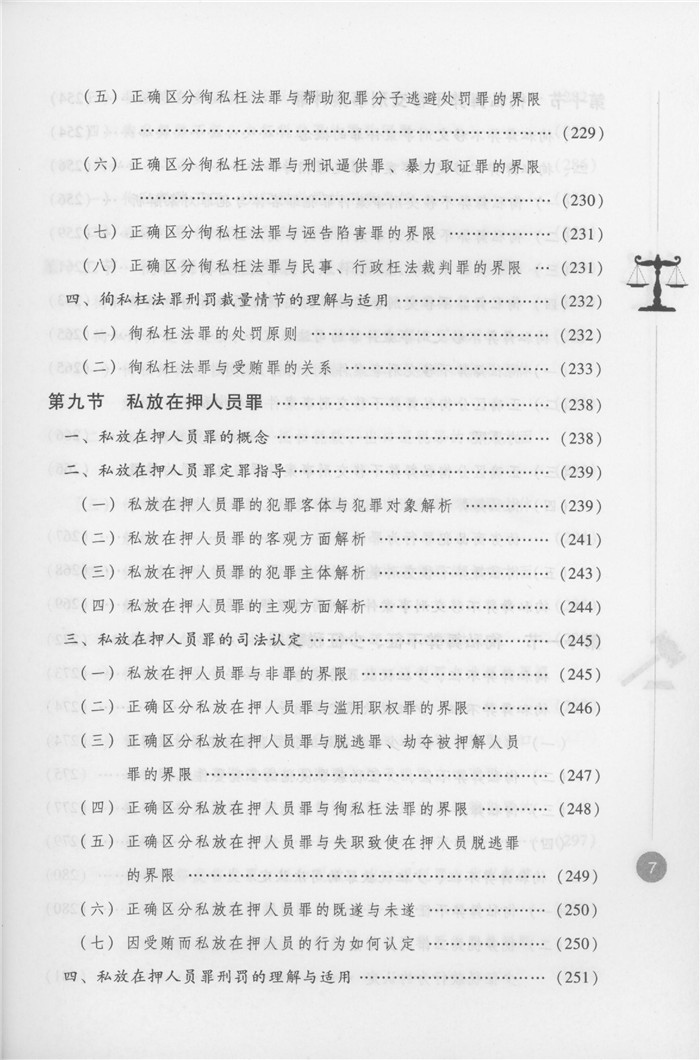 （五）正确区分徇私枉法罪与帮助犯罪分子逃避处罚罪的界限
……………………………………………………（229）
（六）正确区分徇私枉法罪与刑讯逼供罪、暴力取证罪的界限
……………………………………………………（230）
（七）正确区分徇私枉法罪与诬告陷害罪的界限 ……………（231）
（八）正确区分徇私枉法罪与民事、行政枉法裁判罪的界限 …（231）
四、徇私枉法罪刑罚裁量情节的理解与适用 …………………（232）
（一）徇私枉法罪的处罚原则 …………………………………（232）
（二）徇私枉法罪与受贿罪的关系 ……………………………（233）
第九节 私放在押人员罪 ………………………………………（238）
一、私放在押人员罪的概念 ……………………………………（238）
二、私放在押人员罪定罪指导 …………………………………（239）
（一）私放在押人员罪的犯罪客体与犯罪对象解析 …………（239）
（二）私放在押人员罪的客观方面解析 ………………………（241）
（三）私放在押人员罪的犯罪主体解析 ………………………（243）
（四）私放在押人员罪的主观方面解析 ………………………（244）
三、私放在押人员罪的司法认定 ………………………………（245）
（一）私放在押人员罪与非罪的界限 …………………………（245）
（二）正确区分私放在押人员罪与滥用职权罪的界限 ………（246）
（三）正确区分私放在押人员罪与脱逃罪、劫夺被押解人员
罪的界限 ………………………………………………（247）
（四）正确区分私放在押人员罪与徇私枉法罪的界限 ………（248）
（五）正确区分私放在押人员罪与失职致使在押人员脱逃罪
的界限 …………………………………………………（249）
（六）正确区分私放在押人员罪的既遂与未遂 ………………（250）
（七）因受贿而私放在押人员的行为如何认定 ………………（250）
四、私放在押人员罪刑罚的理解与适用 ………………………（251）
7